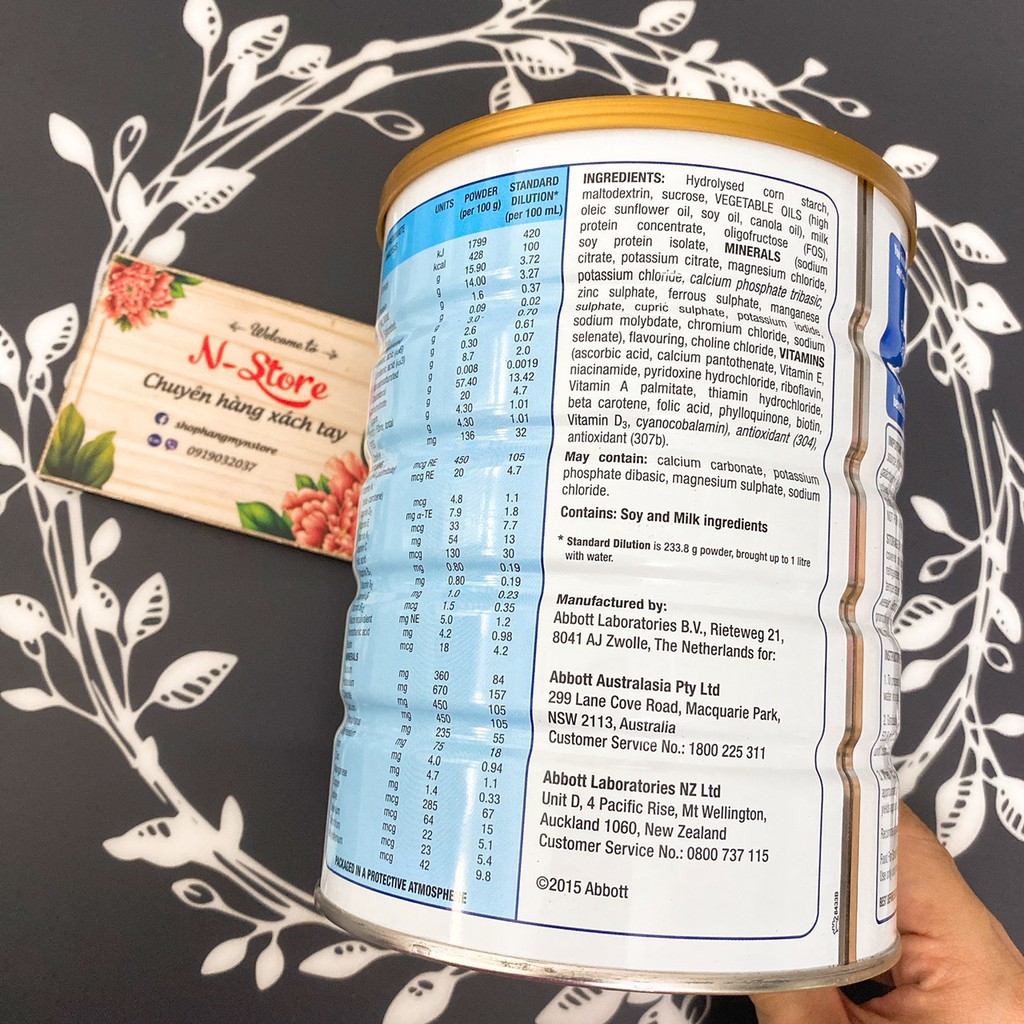 Welcome to
N-Store
Chuyên hàng xách tay
shophangmynstore
0919032037
UNITS POWDER (per 100 g) STANDARD DILUTION* (per 100 mL)
kJ 1799 420
kcal 428 100
g 15.90 3.72
g 14.00 3.27
g 1.6 0.37
g 0.09 0.02
g 3.0 0.70
g 2.6 0.61
g 0.30 0.07
g 8.7 2.0
g 0.008 0.0019
g 57.40 13.42
g 20 4.7
g 4.30 1.01
g 4.30 1.01
mg 136 32
mcg RE 450 105
mcg RE 20 4.7
mcg 4.8 1.1
mg α-TE 7.9 1.8
mcg 33 7.7
mg 54 13
mcg 130 30
mg 0.80 0.19
mg 0.80 0.19
mg 1.0 0.23
mcg 1.5 0.35
mg NE 5.0 1.2
mg 4.2 0.98
mcg 18 4.2
mg 360 84
mg 670 157
mg 450 105
mg 450 105
mg 235 55
mg 75 18
mg 4.0 0.94
mg 4.7 1.1
mg 1.4 0.33
mcg 285 67
mcg 64 15
mcg 22 5.1
mcg 23 5.4
mcg 42 9.8
PACKAGED IN A PROTECTIVE ATMOSPHERE
INGREDIENTS: Hydrolysed corn starch,
maltodextrin, sucrose, VEGETABLE OILS (high
oleic sunflower oil, soy oil, canola oil), milk
protein concentrate, oligofructose (FOS),
soy protein isolate, MINERALS (sodium
citrate, potassium citrate, magnesium chloride,
potassium chloride, calcium phosphate tribasic,
zinc sulphate, ferrous sulphate, manganese
sulphate, cupric sulphate, potassium iodide,
sodium molybdate, chromium chloride, sodium
selenate), flavouring, choline chloride, VITAMINS
(ascorbic acid, calcium pantothenate, Vitamin E,
niacinamide, pyridoxine hydrochloride, riboflavin,
Vitamin A palmitate, thiamin hydrochloride,
beta carotene, folic acid, phylloquinone, biotin,
Vitamin D3, cyanocobalamin), antioxidant (304),
antioxidant (307b).
May contain: calcium carbonate, potassium
phosphate dibasic, magnesium sulphate, sodium
chloride.
Contains: Soy and Milk ingredients
* Standard Dilution is 233.8 g powder, brought up to 1 litre
with water.
Manufactured by:
Abbott Laboratories B.V., Rieteweg 21,
8041 AJ Zwolle, The Netherlands for:
Abbott Australasia Pty Ltd
299 Lane Cove Road, Macquarie Park,
NSW 2113, Australia
Customer Service No.: 1800 225 311
Abbott Laboratories NZ Ltd
Unit D, 4 Pacific Rise, Mt Wellington,
Auckland 1060, New Zealand
Customer Service No.: 0800 737 115
©2015 Abbott